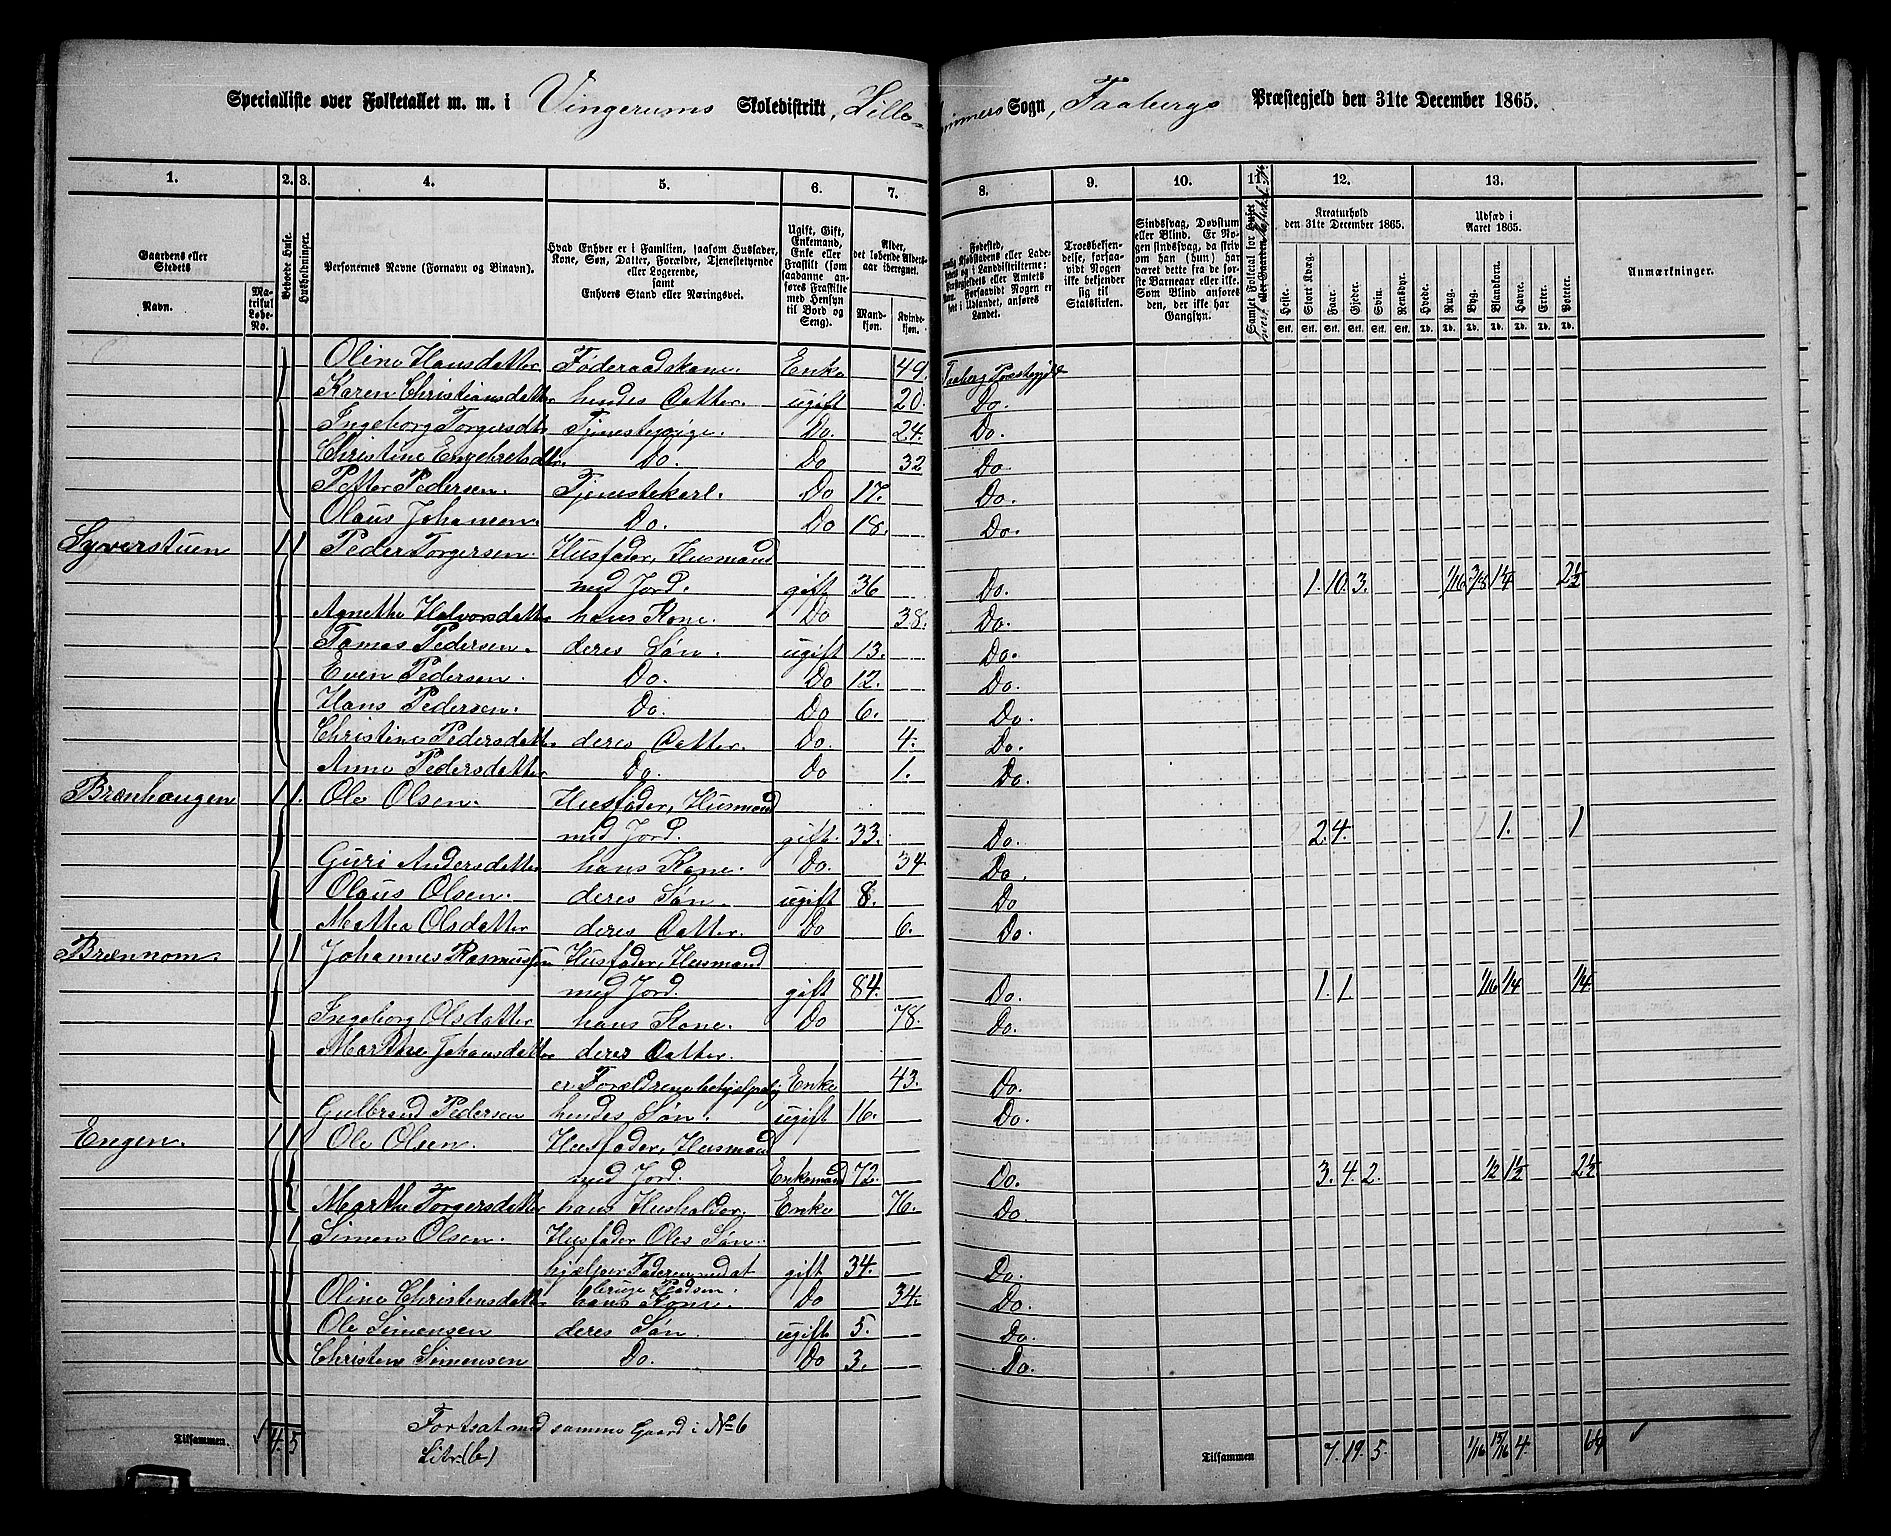 Specialliste over Folketallet m. m. i Vingerums Skoledistrikt, Lille-
hammers Sogn, Faabergs Præstegjeld den 31te December 1865.
1. 2. 3. 4. 5. 6. 7. 8. 9. 10. 11. 12. 13.
Gaardens eller Stedets
Navn.
Matrikul Løbe-No.
Beboede Huse.
Husholdninger.
Personernes Navne (Fornavn og Binavn).
Hvad Enhver er i Familien, saasom Husfader, Kone, Søn, Datter, Forældre, Tjenestetyende eller Logerende, samt Enhvers Stand eller Næringsvei.
Ugift, Gift, Enkemand, Enke eller Fraskilt (som saadanne anføres Fraskilte med Hensyn til Bord og Seng).
Alder, det løbende Aldersaar iberegnet.
Mandkjøn. Kvindekjøn.
Fødested,
Troesbekjendelse, forsaavidt Nogen ikke bekjender sig til Statskirken.
Sindssvag, Døvstum eller Blind. Er Nogen sindssvag, da skrives om han (hun) har været dette fra de første Barneaar eller ikke. Som Blind anføres den, der ikke har Gangsyn.
Kreaturhold den 31te December 1865.
Heste. Stort Kvæg. Faar. Gjeder. Svin. Rensdyr.
Stk. Stk. Stk. Stk. Stk. Stk.
Udsæd i Aaret 1865.
Hvede. Rug. Byg. Blandkorn. Havre. Erter. Poteter.
Td. Td. Td. Td. Td. Td. Td.
Anmærkninger.
Oline Hansdatter Føderaadskone. Enke 49. Faaberg Præstegjeld
Karen Christiansdatter hendes Datter. ugift 20. Do.
Ingeborg Torgersdtr Tjenestepige. Do. 24. Do.
Christine Engebretsdtr. Do. Do 32 Do.
Petter Pedersen. Tjenestekarl. Do 17. Do.
Olaus Johansen. Do. Do 18. Do.
Syverstuen 1 1 Peder Torgersen. Husfader, Husmand
med Jord. gift 36 Do. 1. 10. 3. 1/16 3/8 1 1/4 2 1/2
Agnethe Halvorsdatter hans Kone. Do 38. Do.
Tomas Pedersen. deres Søn. ugift 13. Do.
Even Pedersen. Do. Do 12. Do.
Hans Pedersen. Do. Do 6. Do.
Christine Pedersdatter deres Datter. Do. 4. Do.
Anne Pedersdatter Do. Do 1. Do.
Brænhaugen 1 1. Ole Olsen. Husfader, Husmand
med Jord. gift. 33. Do. 2. 4. 1. 1
Guri Andersdatter hans Kone. Do. 34 Do.
Olaus Olsen. deres Søn. ugift 8. Do
Mathea Olsdatter deres Datter. Do 6. Do.
Brænnom. 1 1 Johannes Rasmussen Husfader, Husmand
med Jord. gift 84. Do. 1. 1. 1/16 1/4 1/4
Ingeborg Olsdatter hans Kone. Do 78. Do.
Marthe Johansdatter deres Datter.
er Forældrene behjelpelig Enke 43. Do.
Gulbrand Pedersen hendes Søn. ugift 16. Do.
Engen. 1 1 Ole Olsen. Husfader, Husmand
med Jord. Enkemand 72. Do. 3. 4. 2. 1/2 1 1/2 2 1/2
Marthe Torgersdatter hans Husholder. Enke 76. Do.
1 Simen Olsen. Husfader Oles Søn.
hjælper Faderen med at gift 34. Do.
bruge Pladsen.
Oline Christensdatter hans Kone. Do 34. Do.
Ole Simensen deres Søn. ugift 5. Do.
Christen Simensen Do. Do 3. Do.
Fortsat med samme Gaard i No 6
Litr. (b)
Tilsammen. 4. 5
Tilsammen 7. 19. 5. 1/16 15/16 4